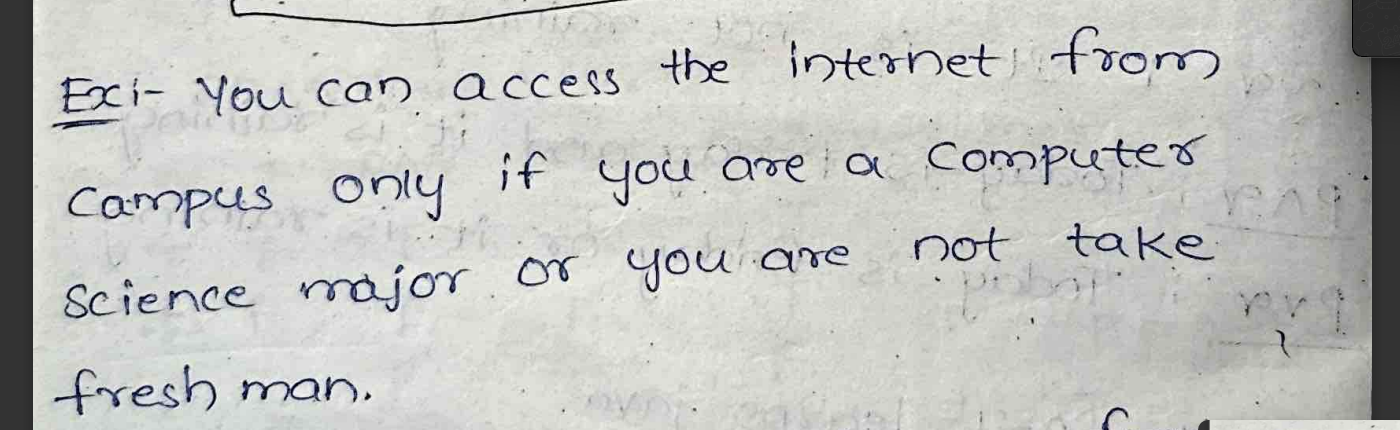 Ex:- You can access the internet from
campus only if you are a computer
science major or you are not take
fresh man.